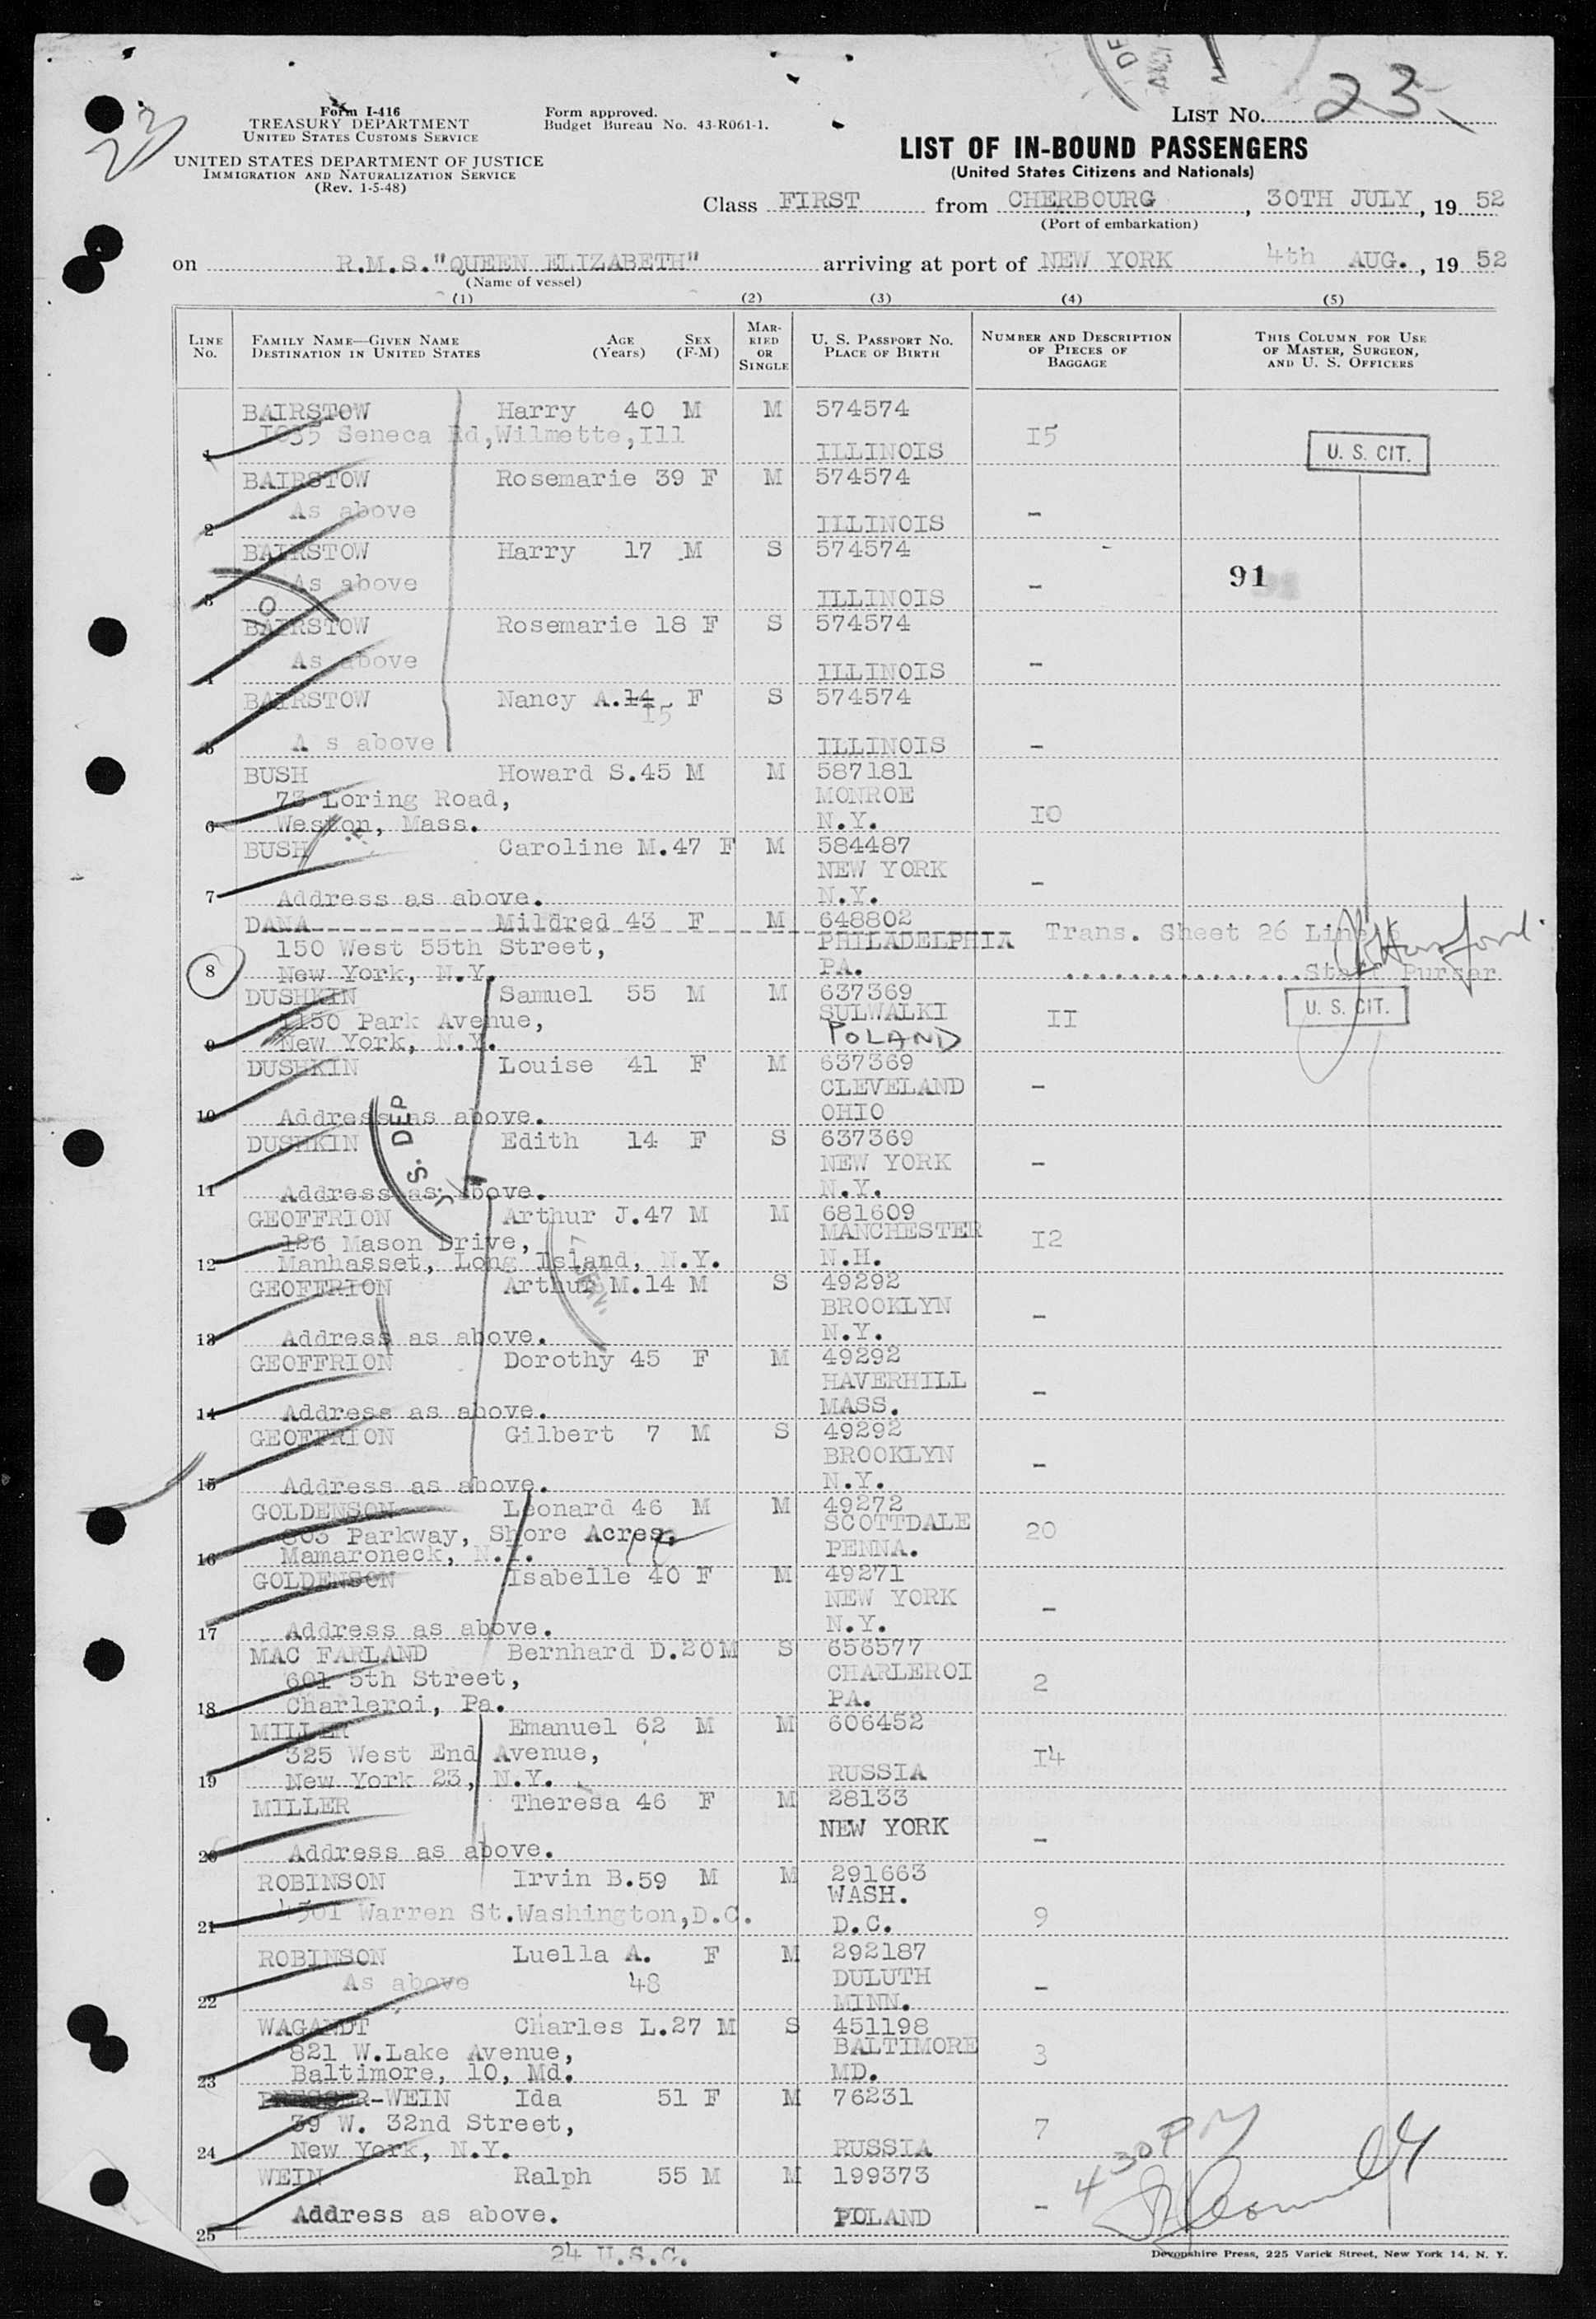 23
Form I-416
TREASURY DEPARTMENT
UNITED STATES CUSTOMS SERVICE
UNITED STATES DEPARTMENT OF JUSTICE
IMMIGRATION AND NATURALIZATION SERVICE
(Rev. 1-5-48)
Form approved.
Budget Bureau No. 43-R061-1.
LIST NO. 23
LIST OF IN-BOUND PASSENGERS
(United States Citizens and Nationals)
Class FIRST from CHERBOURG, 30TH JULY, 19 52
(Port of embarkation)
on R.M.S."QUEEN ELIZABETH" arriving at port of NEW YORK 4th AUG., 19 52
(Name of vessel)
(1) (2) (3) (4) (5)
LINE NO.
FAMILY NAME—GIVEN NAME
DESTINATION IN UNITED STATES
AGE (Years)
SEX (F-M)
MARRIED OR SINGLE
U. S. PASSPORT NO.
PLACE OF BIRTH
NUMBER AND DESCRIPTION OF PIECES OF BAGGAGE
THIS COLUMN FOR USE OF MASTER, SURGEON, AND U. S. OFFICERS
BAIRSTOW Harry 40 M M 574574
1035 Seneca Rd,Wilmette,Ill 15
1 ILLINOIS U. S. CIT.
BAIRSTOW Rosemarie 39 F M 574574
As above -
2 ILLINOIS
BAIRSTOW Harry 17 M S 574574
As above - 91
3 ILLINOIS
BAIRSTOW Rosemarie 18 F S 574574
As above -
4 ILLINOIS
BAIRSTOW Nancy A.14 F S 574574
15
5 A s above ILLINOIS -
BUSH Howard S.45 M M 587181
73 Loring Road, MONROE 10
6 Weston, Mass. N.Y.
BUSH Caroline M.47 F M 584487
NEW YORK -
7 Address as above. N.Y.
DANA Mildred 43 F M 648802
150 West 55th Street, PHILADELPHIA Trans. Sheet 26 Line
8 New York, N.Y. PA. Staff Purser
DUSHKIN Samuel 55 M M 637369
1150 Park Avenue, SULWALKI 11 U. S. CIT.
9 New York, N.Y. POLAND
DUSHKIN Louise 41 F M 637369
CLEVELAND -
10 Address as above. OHIO
DUSHKIN Edith 14 F S 637369
NEW YORK -
11 Address as above. N.Y.
GEOFFRION Arthur J.47 M M 681609
126 Mason Drive, MANCHESTER 12
12 Manhasset, Long Island, N.Y. N.H.
GEOFFRION Arthur M.14 M S 49292
BROOKLYN -
13 Address as above. N.Y.
GEOFFRION Dorothy 45 F M 49292
HAVERHILL -
14 Address as above. MASS.
GEOFFRION Gilbert 7 M S 49292
BROOKLYN -
15 Address as above. N.Y.
GOLDENSON Leonard 46 M M 49272
803 Parkway, Shore Acres, SCOTTDALE 20
16 Mamaroneck, N.Y. PENNA.
GOLDENSON Isabelle 40 F M 49271
NEW YORK -
17 Address as above. N.Y.
MAC FARLAND Bernhard D.20M S 656577
601 5th Street, CHARLEROI 2
18 Charleroi, Pa. PA.
MILLER Emanuel 62 M M 606452
325 West End Avenue, 14
19 New York 23, N.Y. RUSSIA
MILLER Theresa 46 F M 28133
NEW YORK -
20 Address as above.
ROBINSON Irvin B.59 M M 291663
WASH.
21 4301 Warren St.Washington,D.C. D.C. 9
ROBINSON Luella A. F M 292187
As above 48 DULUTH -
22 MINN.
WAGANDT Charles L.27 M S 451198
821 W.Lake Avenue, BALTIMORE 3
23 Baltimore, 10, Md. MD.
PRESSER-WEIN Ida 51 F M 76231
39 W. 32nd Street, 7
24 New York, N.Y. RUSSIA
WEIN Ralph 55 M M 199373
Address as above. POLAND -
25
430 PM
24 U.S.C.
Devonshire Press, 225 Varick Street, New York 14, N. Y.